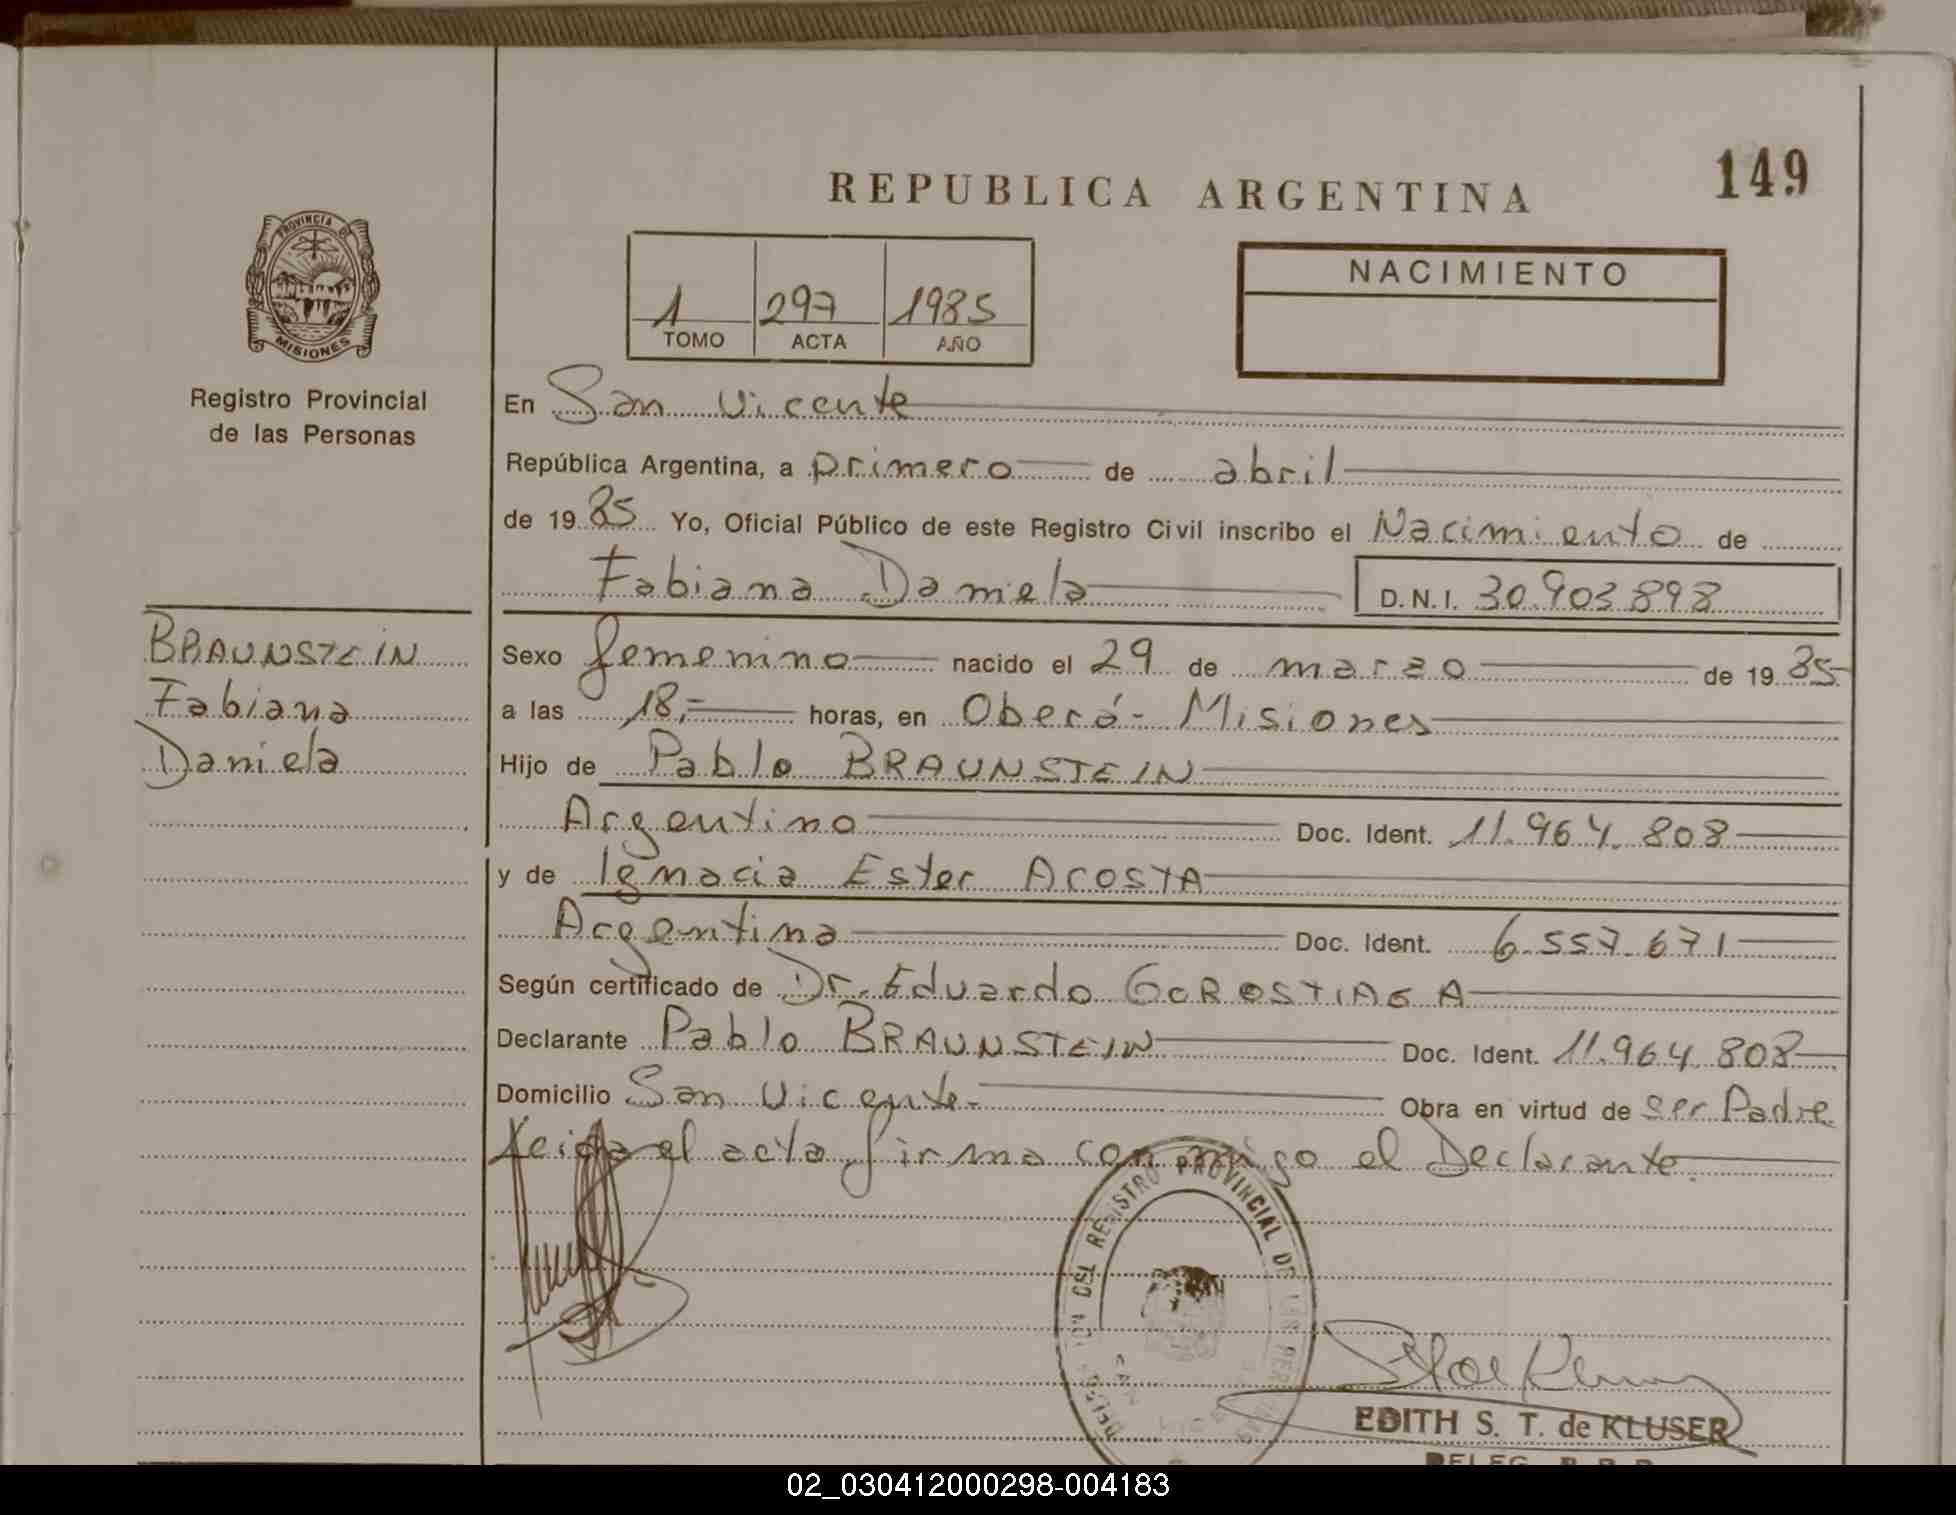 149
REPUBLICA ARGENTINA
PROVINCIA DE
MISIONES
Registro Provincial
de las Personas
1 297 1985
TOMO ACTA AÑO
NACIMIENTO
En San Vicente
República Argentina, a primero de abril
de 1985 Yo, Oficial Público de este Registro Civil inscribo el Nacimiento de
Fabiana Daniela D.N.I. 30.903.898
BRAUNSTEIN
Fabiana
Daniela
Sexo femenino nacido el 29 de marzo de 1985
a las 18,- horas, en Oberá- Misiones
Hijo de Pablo BRAUNSTEIN
Argentino Doc. Ident. 11.964.808
y de Ignacia Ester ACOSTA
Argentina Doc. Ident. 6.557.671
Según certificado de Dr. Eduardo GOROSTIAGA
Declarante Pablo BRAUNSTEIN Doc. Ident. 11.964.808
Domicilio San Vicente- Obra en virtud de ser Padre
Leida el acta firma conmigo el Declarante.
DEL REGISTRO PROVINCIAL DE LAS PERSONAS
EDITH S. T. de KLUSER
DELEG. R. P. P.
02_030412000298-004183